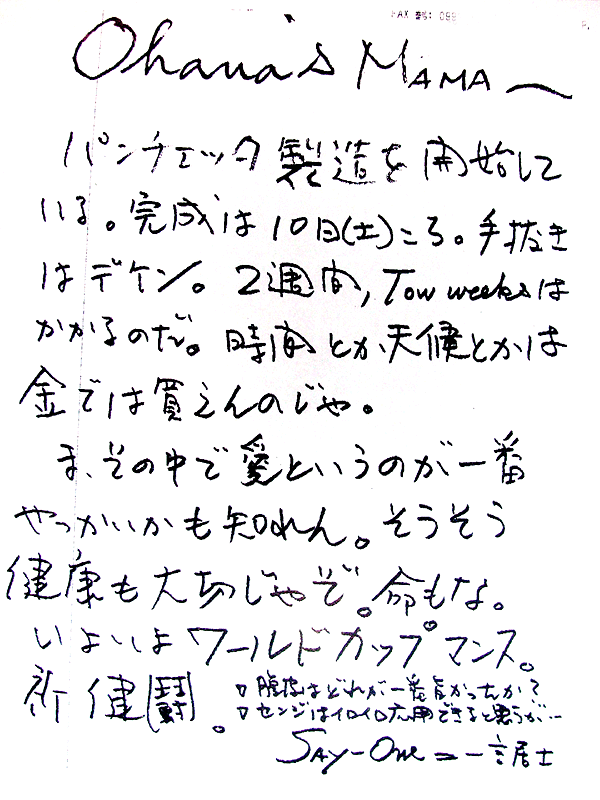 FAX 番: 099
Ohana's MAMA〜
パンチェッタ製造を開始して
いる。完成は10日(土)ころ。手抜き
はデケン。2週間, Tow weeksは
かかるのだ。時間とか天候とかは
金では買えんのじゃ。
ま、その中で愛というのが一番
やっかいかも知れん。そうそう
健康も大切じゃぞ。命もな。
いよいよワールドカップ。マンス。
祈健闘。
はどれが一番良かったか?
センジはイロイロ応用できると思うが…
SAY-One=一言居士